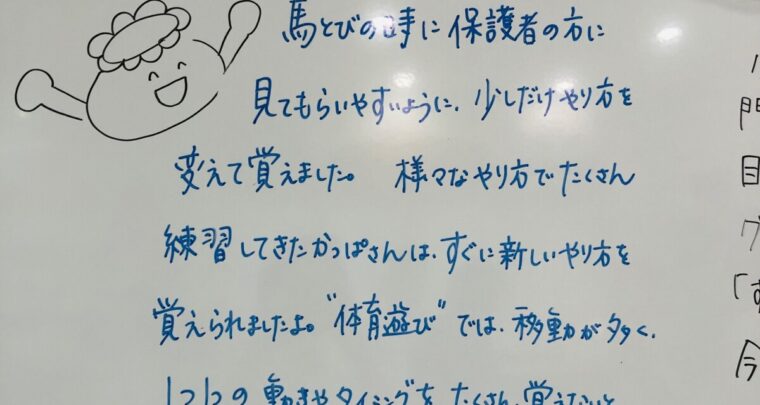 馬とびの時に保護者の方に
見てもらいやすいように、少しだけやり方を
変えて覚えました。 様々なやり方でたくさん
練習してきたかっぱさんは、すぐに新しいやり方を
覚えられましたよ。“体育遊び”では、移動が多く、
1つ1つの動きやタイミングをたくさん覚えないと
門
目
グ
「す
今